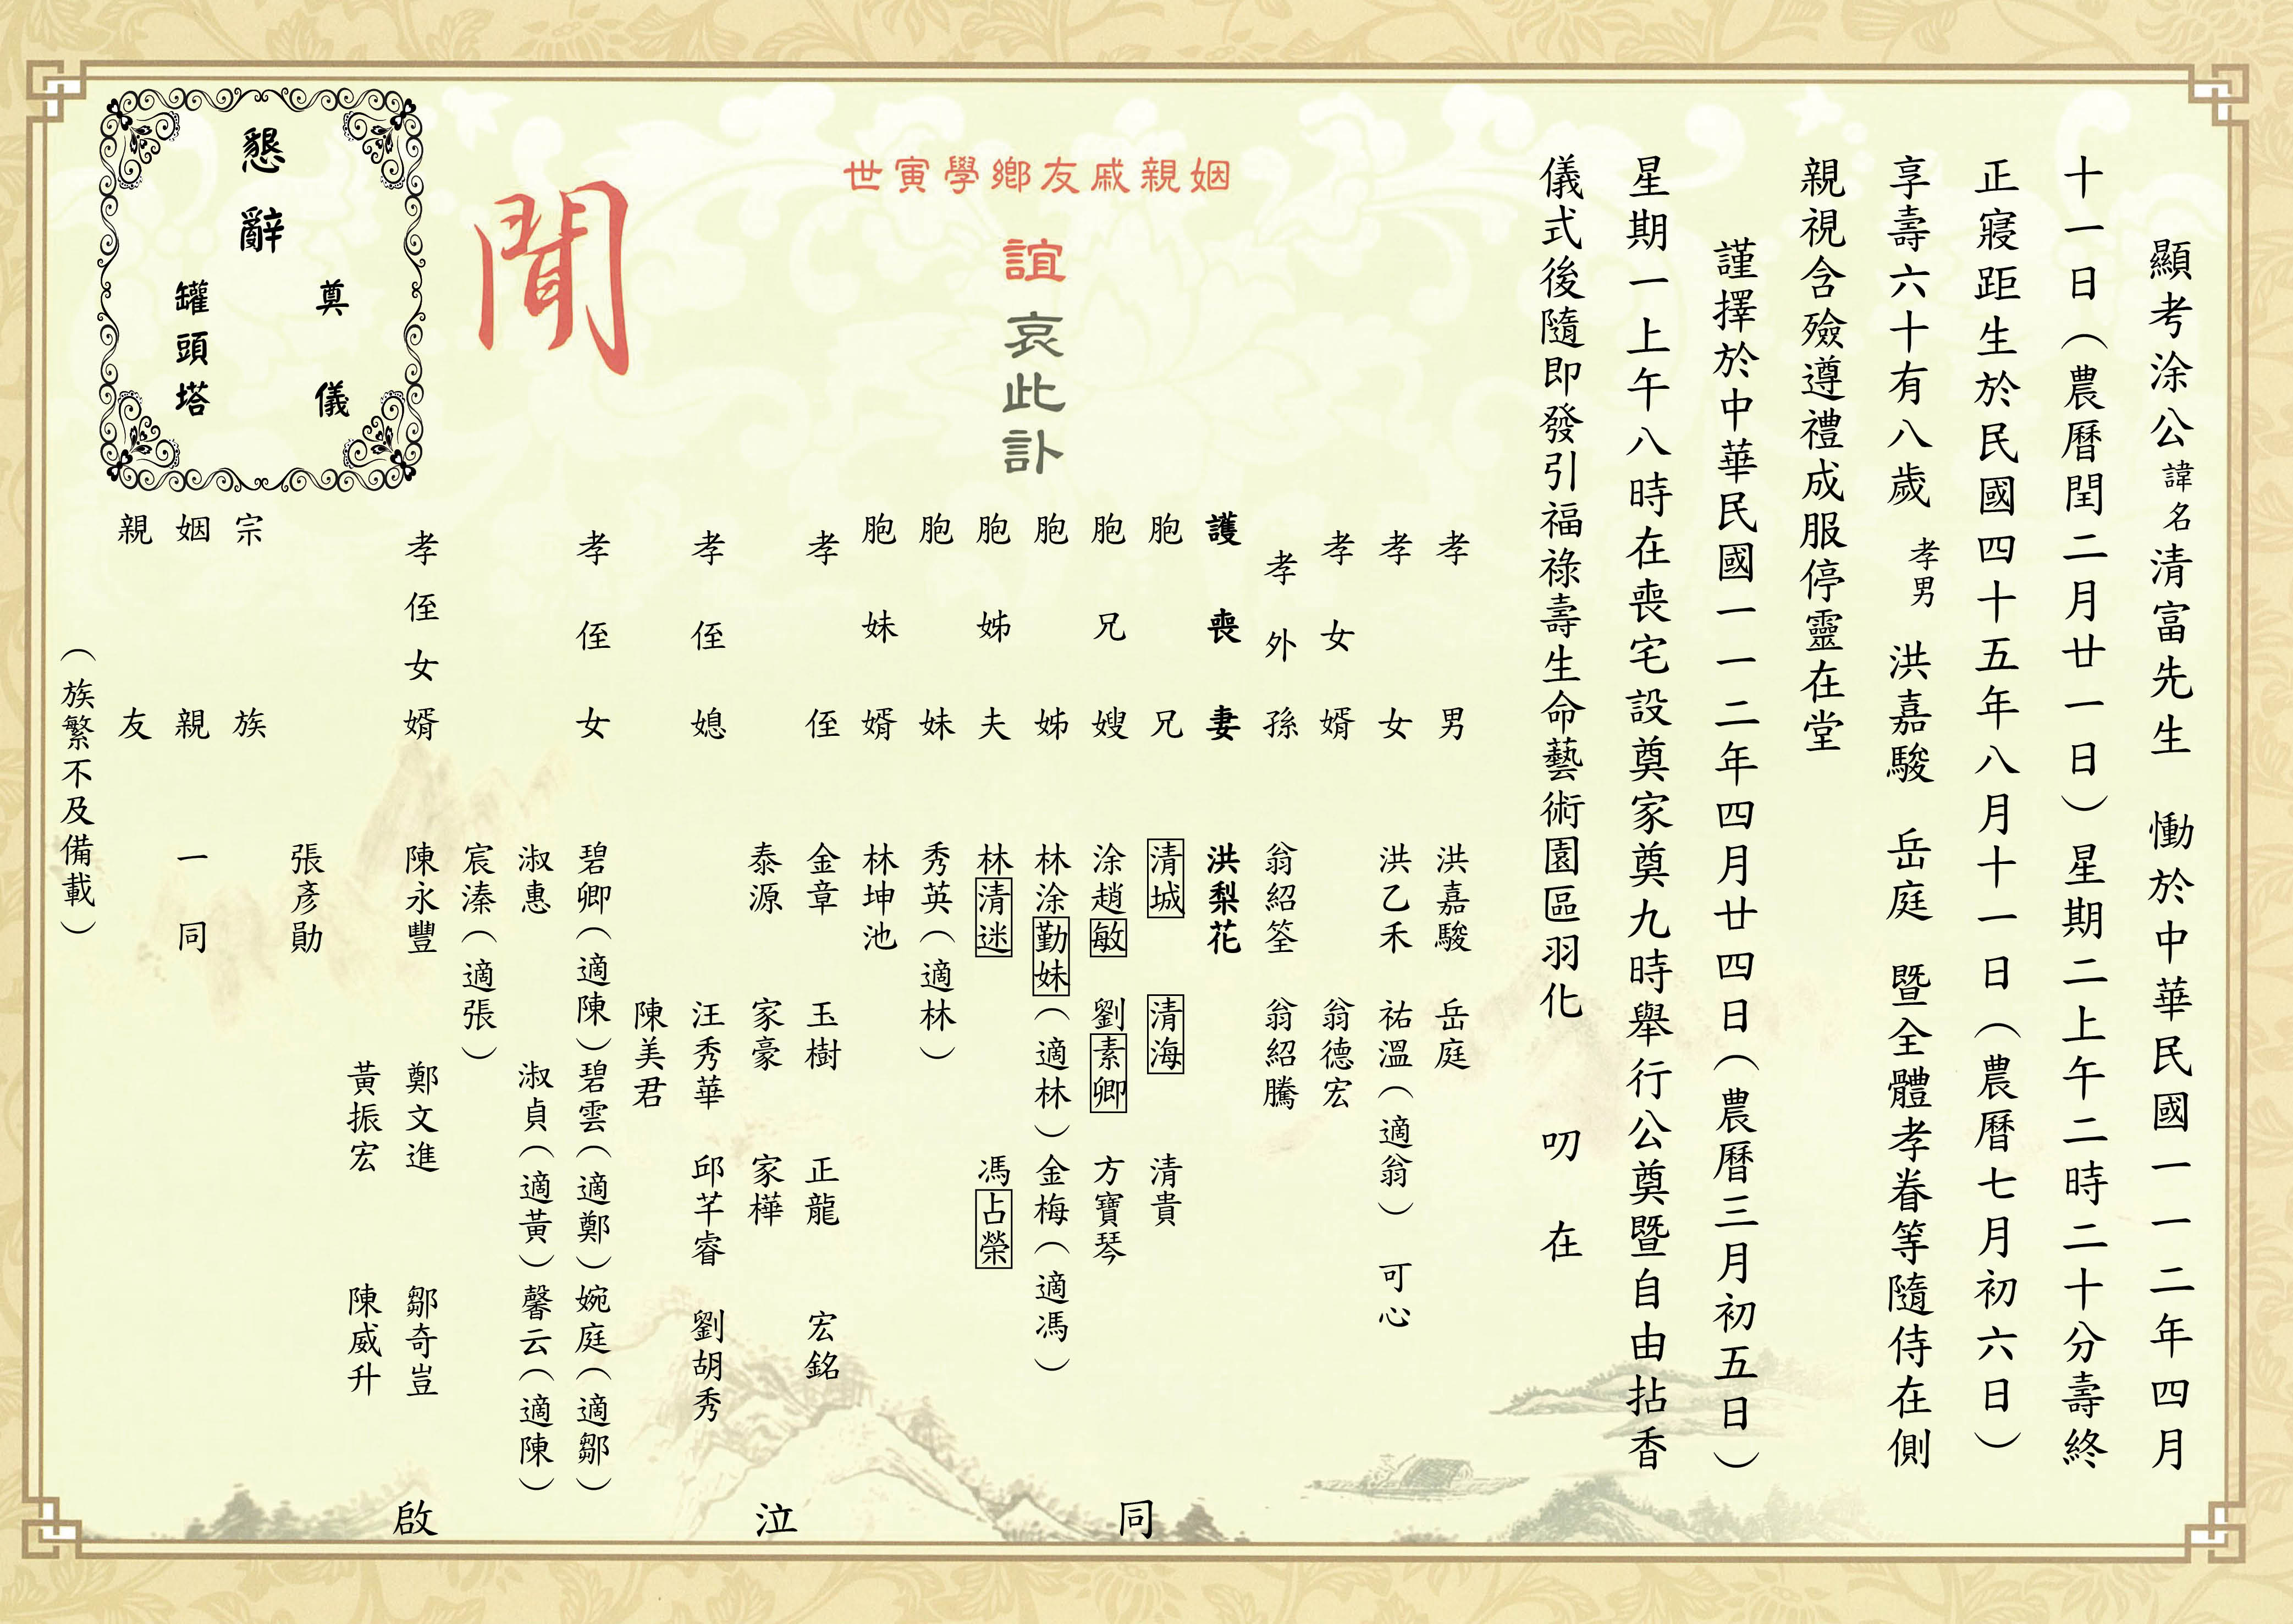 顯考涂公諱名清富先生　慟於中華民國一一二年四月
十一日（農曆閏二月廿一日）星期二上午二時二十分壽終
正寢距生於民國四十五年八月十一日（農曆七月初六日）
享壽六十有八歲　孝男　洪嘉駿　岳庭　暨全體孝眷等隨侍在側
親視含殮遵禮成服停靈在堂
謹擇於中華民國一一二年四月廿四日（農曆三月初五日）
星期一上午八時在喪宅設奠家奠九時舉行公奠暨自由拈香
儀式後隨即發引福祿壽生命藝術園區羽化　叨　在
姻親戚友鄉學寅世
誼 哀此訃
聞
孝男　洪嘉駿　岳庭
孝女　洪乙禾　祐溫（適翁）　可心
孝女婿　翁德宏
孝外孫　翁紹筌　翁紹騰
護喪妻　洪梨花
胞兄　清城　清海　清貴
胞兄嫂　涂趙敏　劉素卿　方寶琴
胞姊　林涂勤妹（適林）　金梅（適馮）
胞姊夫　林清迷　馮占榮
胞妹　秀英（適林）
胞妹婿　林坤池
孝侄　金章　玉樹　正龍　宏銘
泰源　家豪　家樺
孝侄媳　汪秀華　邱芊睿　劉胡秀
陳美君
孝侄女　碧卿（適陳）　碧雲（適鄭）　婉庭（適鄒）
淑惠　淑貞（適黃）　馨云（適陳）
宸溱（適張）
孝侄女婿　陳永豐　鄭文進　鄒奇豈
黃振宏　陳威升
張彥勛
宗族
姻親　一同
親友
（族繁不及備載）
同　泣　啟
懇辭
奠儀
罐頭塔